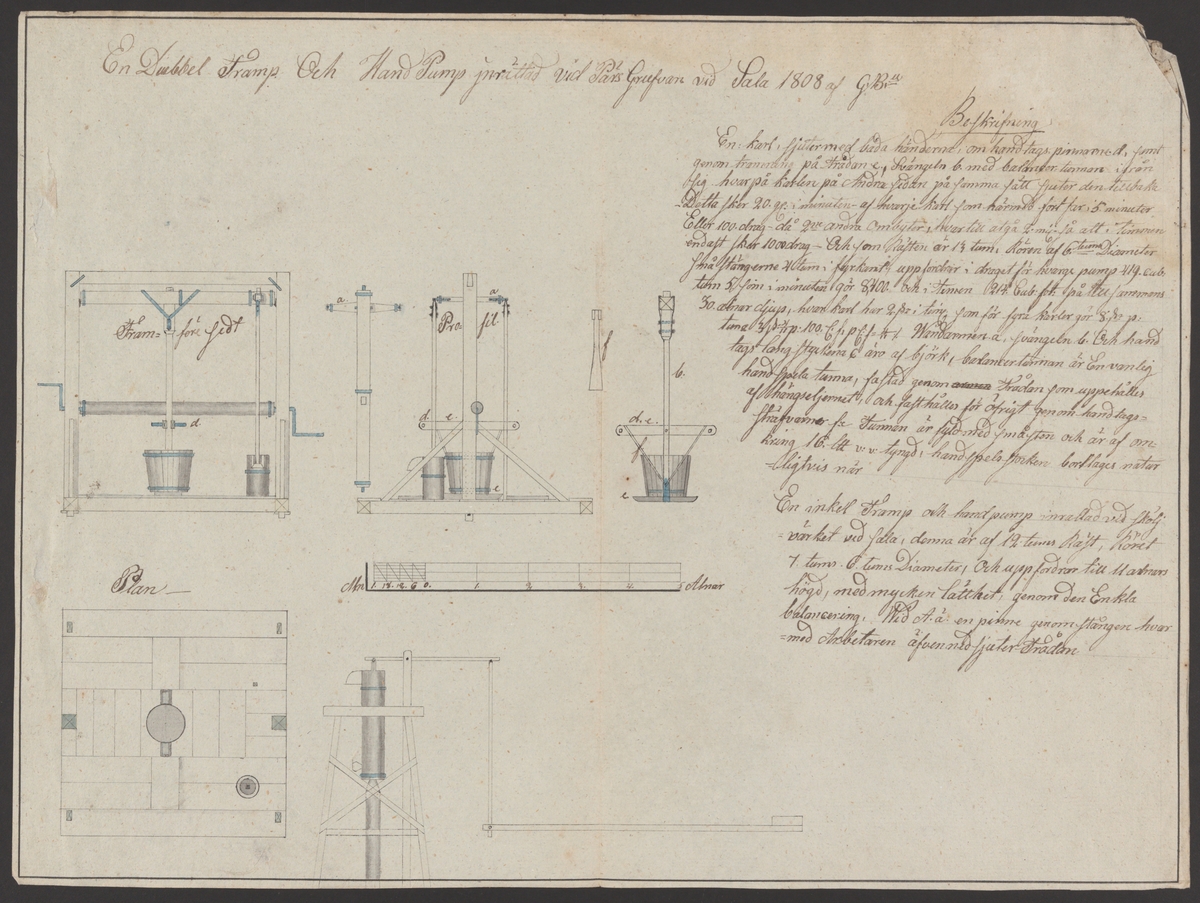 En Dubbel Tramp Och Hand Pump inrättad vid Pärs Grufvan vid Sala 1808 af G.Bm
Beskrifning
En karl skjuter med båda händerna om handtags pinnarne d, samt
genom tramning på Trådan e, Svängeln b. med balancer tunnan ifrån
sig hvarpå karlen på Andra sidan på samma sätt skjuter den tillbaka
Detta sker 20. gr. i minuten af hvarje karl som härmed fortfar 5 minuter
Eller 100 drag då 2ne andra Ombyter, hvartill åtgå 2. m. så att i timmen
endast sker 1000 drag Och som Rästen är 13 tum, Rören af 6. tums Diameter
små stängerne 2 tum i fyrkant uppfordrar i draget för hvarge pump 414. cub.
tum som i minuten gör 8400. Och i timen 1214. Cub. fot på
30. alnar djup, hvar karl har 2 som för fyra karlar gör 8
Vändarmen a, svängeln b. Och hand
tags lang styckena c äro af björk, balancertunnan är En vanlig
handspels tunna, fästad genom Trådan som uppehålles
af Ahängseljernet, och fasthålles för öfrigt genom handtags=
sträfvarne f. Tunnan är fyld med småsten och är af om
kring 16. Ltt v. v. tyngd; handspels stocken borttages natur
=ligtvis när
En inkel Tramp och handpump inrättad ved skölj
=värket ved Sala, denna är af 12 tums Räst, Röret
7. tums 6. tums Diameter, Och uppfordrar till 11 alnars
högd, med mycken lätthet, genom den Enkla
balancering. Wed A. ä en pinne genom stången hvar
=med Arbetaren äfven nedskjuter Trådan
Fram= före sidt
d
a
Pro= fil.
a
d. e.
e
f
b.
d. e.
f
e
Aln
1. 18. 12. 6 0. 1. 2 3. 4. 5 Alnar
Plan